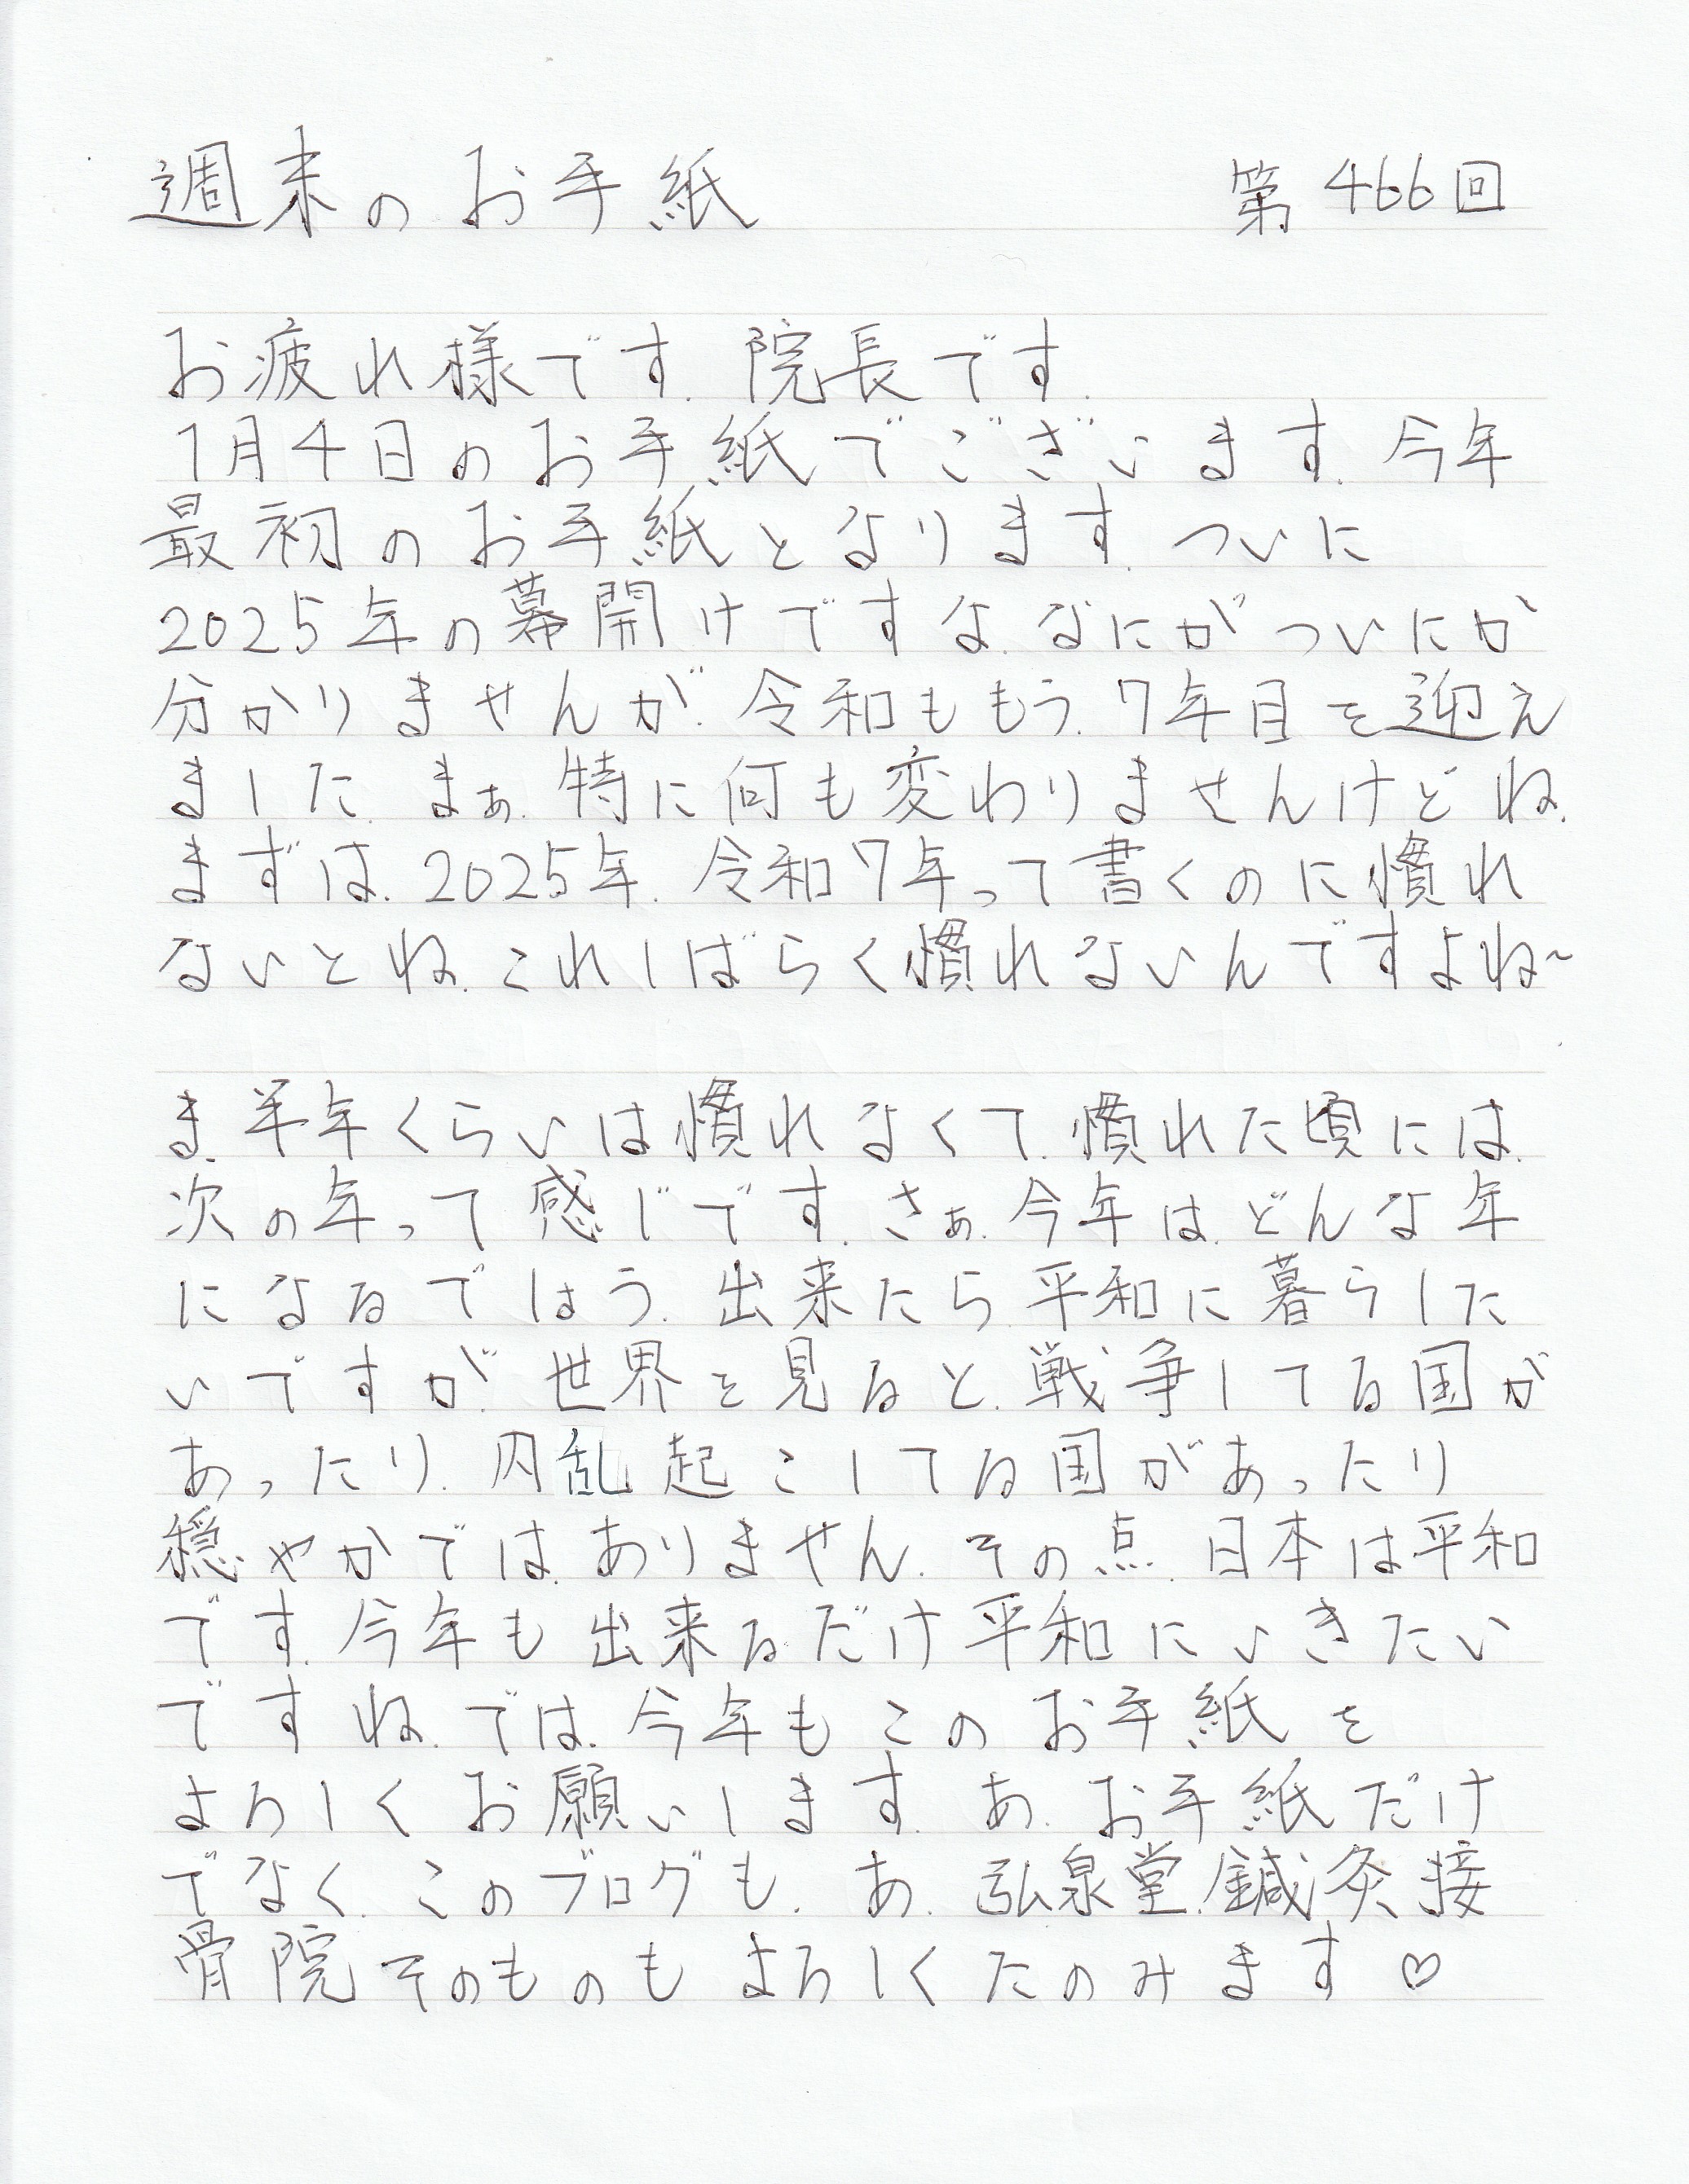 週末のお手紙 第466回
お疲れ様です.院長です.
1月4日のお手紙でございます.今年
最初のお手紙となります.ついに
2025年の幕開けですな.なにがついにか
分かりませんが.令和ももう.7年目を迎え
ました.まぁ.特に何も変わりませんけどね.
まずは.2025年.令和7年って書くのに慣れ
ないとね.これしばらく慣れないんですよね~
ま.半年くらいは慣れなくて.慣れた頃には.
次の年って感じです.さぁ.今年は.どんな年
になるでしょう.出来たら平和に暮らした
いですが.世界を見ると.戦争してる国が
あったり.内乱起こしてる国があったり
穏やかでは.ありません.その点.日本は平和
です.今年も出来るだけ平和にいきたい
ですね.では.今年もこのお手紙を
よろしくお願いします.あ.お手紙だけ
でなく.このブログも.あ.弘泉堂.鍼灸接
骨院そのものもよろしくたのみます♡